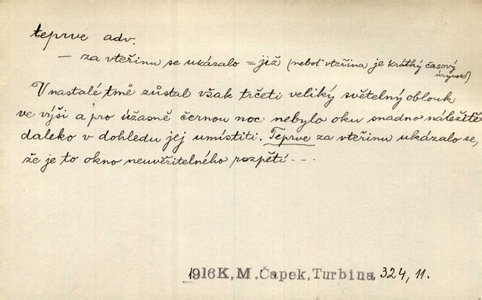 teprve adv.
— za vteřinu se ukázalo = již (neboť vteřina je krátký časový
úryvek)
V nastalé tmě zůstal však trčeti veliký světelný oblouk
ve výši a pro úžasně černou noc nebylo oku snadno náležitě
daleko v dohledu jej umístiti. Teprve za vteřinu ukázalo se,
že je to okno neuvěřitelného rozpětí – – –
1916 K. M. Čapek, Turbina 324, 11.